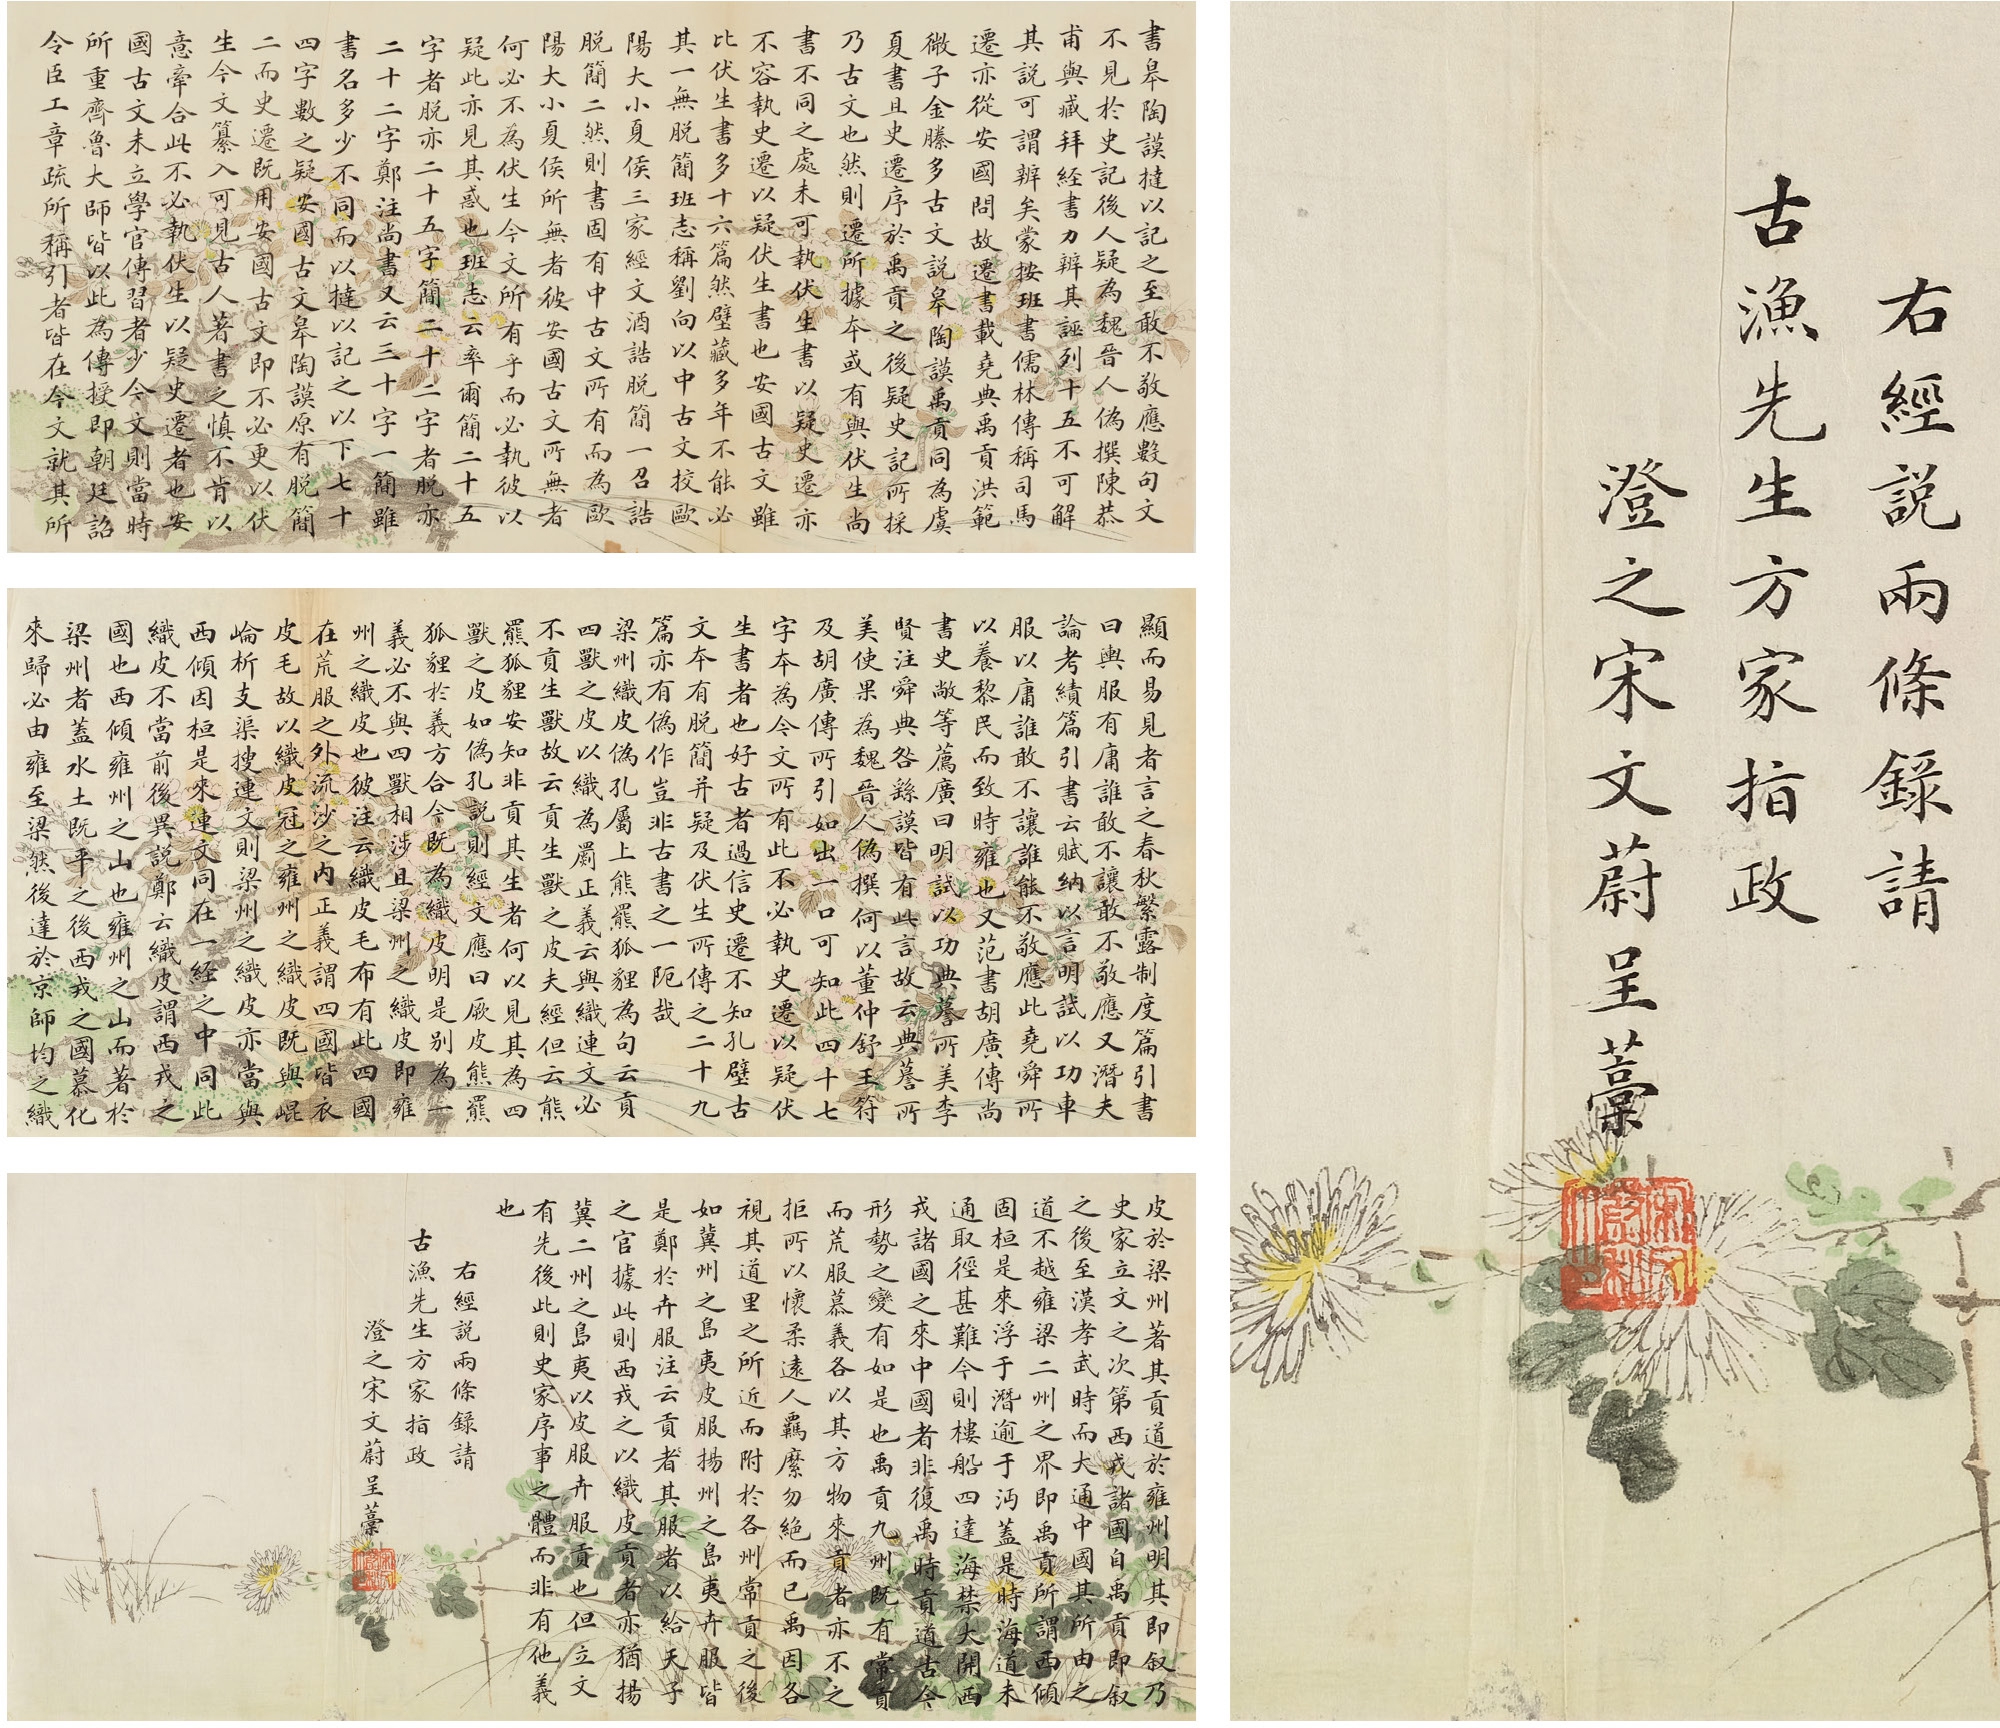 書皋陶謨撻以記之至敢不敬應數句文
不見於史記後人疑為魏晉人偽撰陳恭
甫與臧拜經書力辨其誣列十五不可解
其說可謂辨矣蒙按班書儒林傳稱司馬
遷亦從安國問故遷書載堯典禹貢洪範
微子金縢多古文說皋陶謨禹貢同為虞
夏書且史遷序於禹貢之後疑史記所採
乃古文也然則遷所據本或有與伏生尚
書不同之處未可執伏生書以疑史遷亦
不容執史遷以疑伏生書也安國古文雖
比伏生書多十六篇然壁藏多年不能必
其一無脫簡班志稱劉向以中古文校歐
陽大小夏侯三家經文酒誥脫簡一召誥
脫簡二然則書固有中古文所有而為歐
陽大小夏侯所無者彼安國古文所無者
何必不為伏生今文所有乎而必執彼以
疑此亦見其惑也班志云率爾簡二十五
字者脫亦二十五字簡二十二字者脫亦
二十二字鄭注尚書又云三十字一簡雖
書名多少不同而以撻以記之以下七十
四字數之疑安國古文皋陶謨原有脫簡
二而史遷既用安國古文即不必更以伏
生今文纂入可見古人著書之慎不肯以
意牽合此不必執伏生以疑史遷者也安
國古文未立學官傳習者少今文則當時
所重齊魯大師皆以此為傳授即朝廷詔
令臣工章疏所稱引者皆在今文就其所
顯而易見者言之春秋繁露制度篇引書
曰輿服有庸誰敢不讓敢不敬應又潛夫
論考績篇引書云賦納以言明試以功車
服以庸誰敢不讓誰能不敬應此堯舜所
以養黎民而致時雍也又范書胡廣傳尚
書史敞等薦廣曰明試以功典謩所美李
賢注舜典咎繇謨皆有此言故云典謩所
美使果為魏晉人偽撰何以董仲舒王符
及胡廣傳所引如出一口可知此四十七
字本為今文所有此不必執史遷以疑伏
生書者也好古者過信史遷不知孔壁古
文本有脫簡并疑及伏生所傳之二十九
篇亦有偽作豈非古書之一阨哉
梁州織皮偽孔屬上熊羆狐貍為句云貢
四獸之皮以織為罽正義云與織連文必
不貢生獸故云貢生獸之皮夫經但云熊
羆狐貍安知非貢其生者何以見其為四
獸之皮如偽孔說則經文應曰厥皮熊羆
狐貍於義方合今既為織皮明是別為一
義必不與四獸相涉且梁州之織皮即雍
州之織皮也彼注云織皮毛布有此四國
在荒服之外流沙之內正義謂四國皆衣
皮毛故以織皮冠之雍州之織皮既與崐
崘析支渠搜連文則梁州之織皮亦當與
西傾因桓是來連文同在一經之中同此
織皮不當前後異說鄭云織皮謂西戎之
國也西傾雍州之山也雍州之山而著於
梁州者蓋水土既平之後西戎之國慕化
來歸必由雍至梁然後達於京師均之織
皮於梁州著其貢道於雍州明其即敘乃
史家立文之次第西戎諸國自禹貢即敘
之後至漢孝武時而大通中國其所由之
道不越雍梁二州之界即禹貢所謂西傾
固桓是來浮于潛逾于沔蓋是時海道未
通取徑甚難今則樓船四達海禁大開西
戎諸國之來中國者非復禹時貢道古今
形勢之變有如是也禹貢九州既有常貢
而荒服慕義各以其方物來貢者亦不之
拒所以懷柔遠人羈縻勿絕而已禹因各
視其道里之所近而附於各州常貢之後
如冀州之島夷皮服揚州之島夷卉服皆
是鄭於卉服注云貢者其服者以給天子
之官據此則西戎之以織皮貢者亦猶揚
冀二州之島夷以皮服卉服貢也但立文
有先後此則史家序事之體而非有他義
也
右經說兩條錄請
古漁先生方家指政
澄之宋文蔚呈藁
右經說兩條錄請
古漁先生方家指政
澄之宋文蔚呈藁